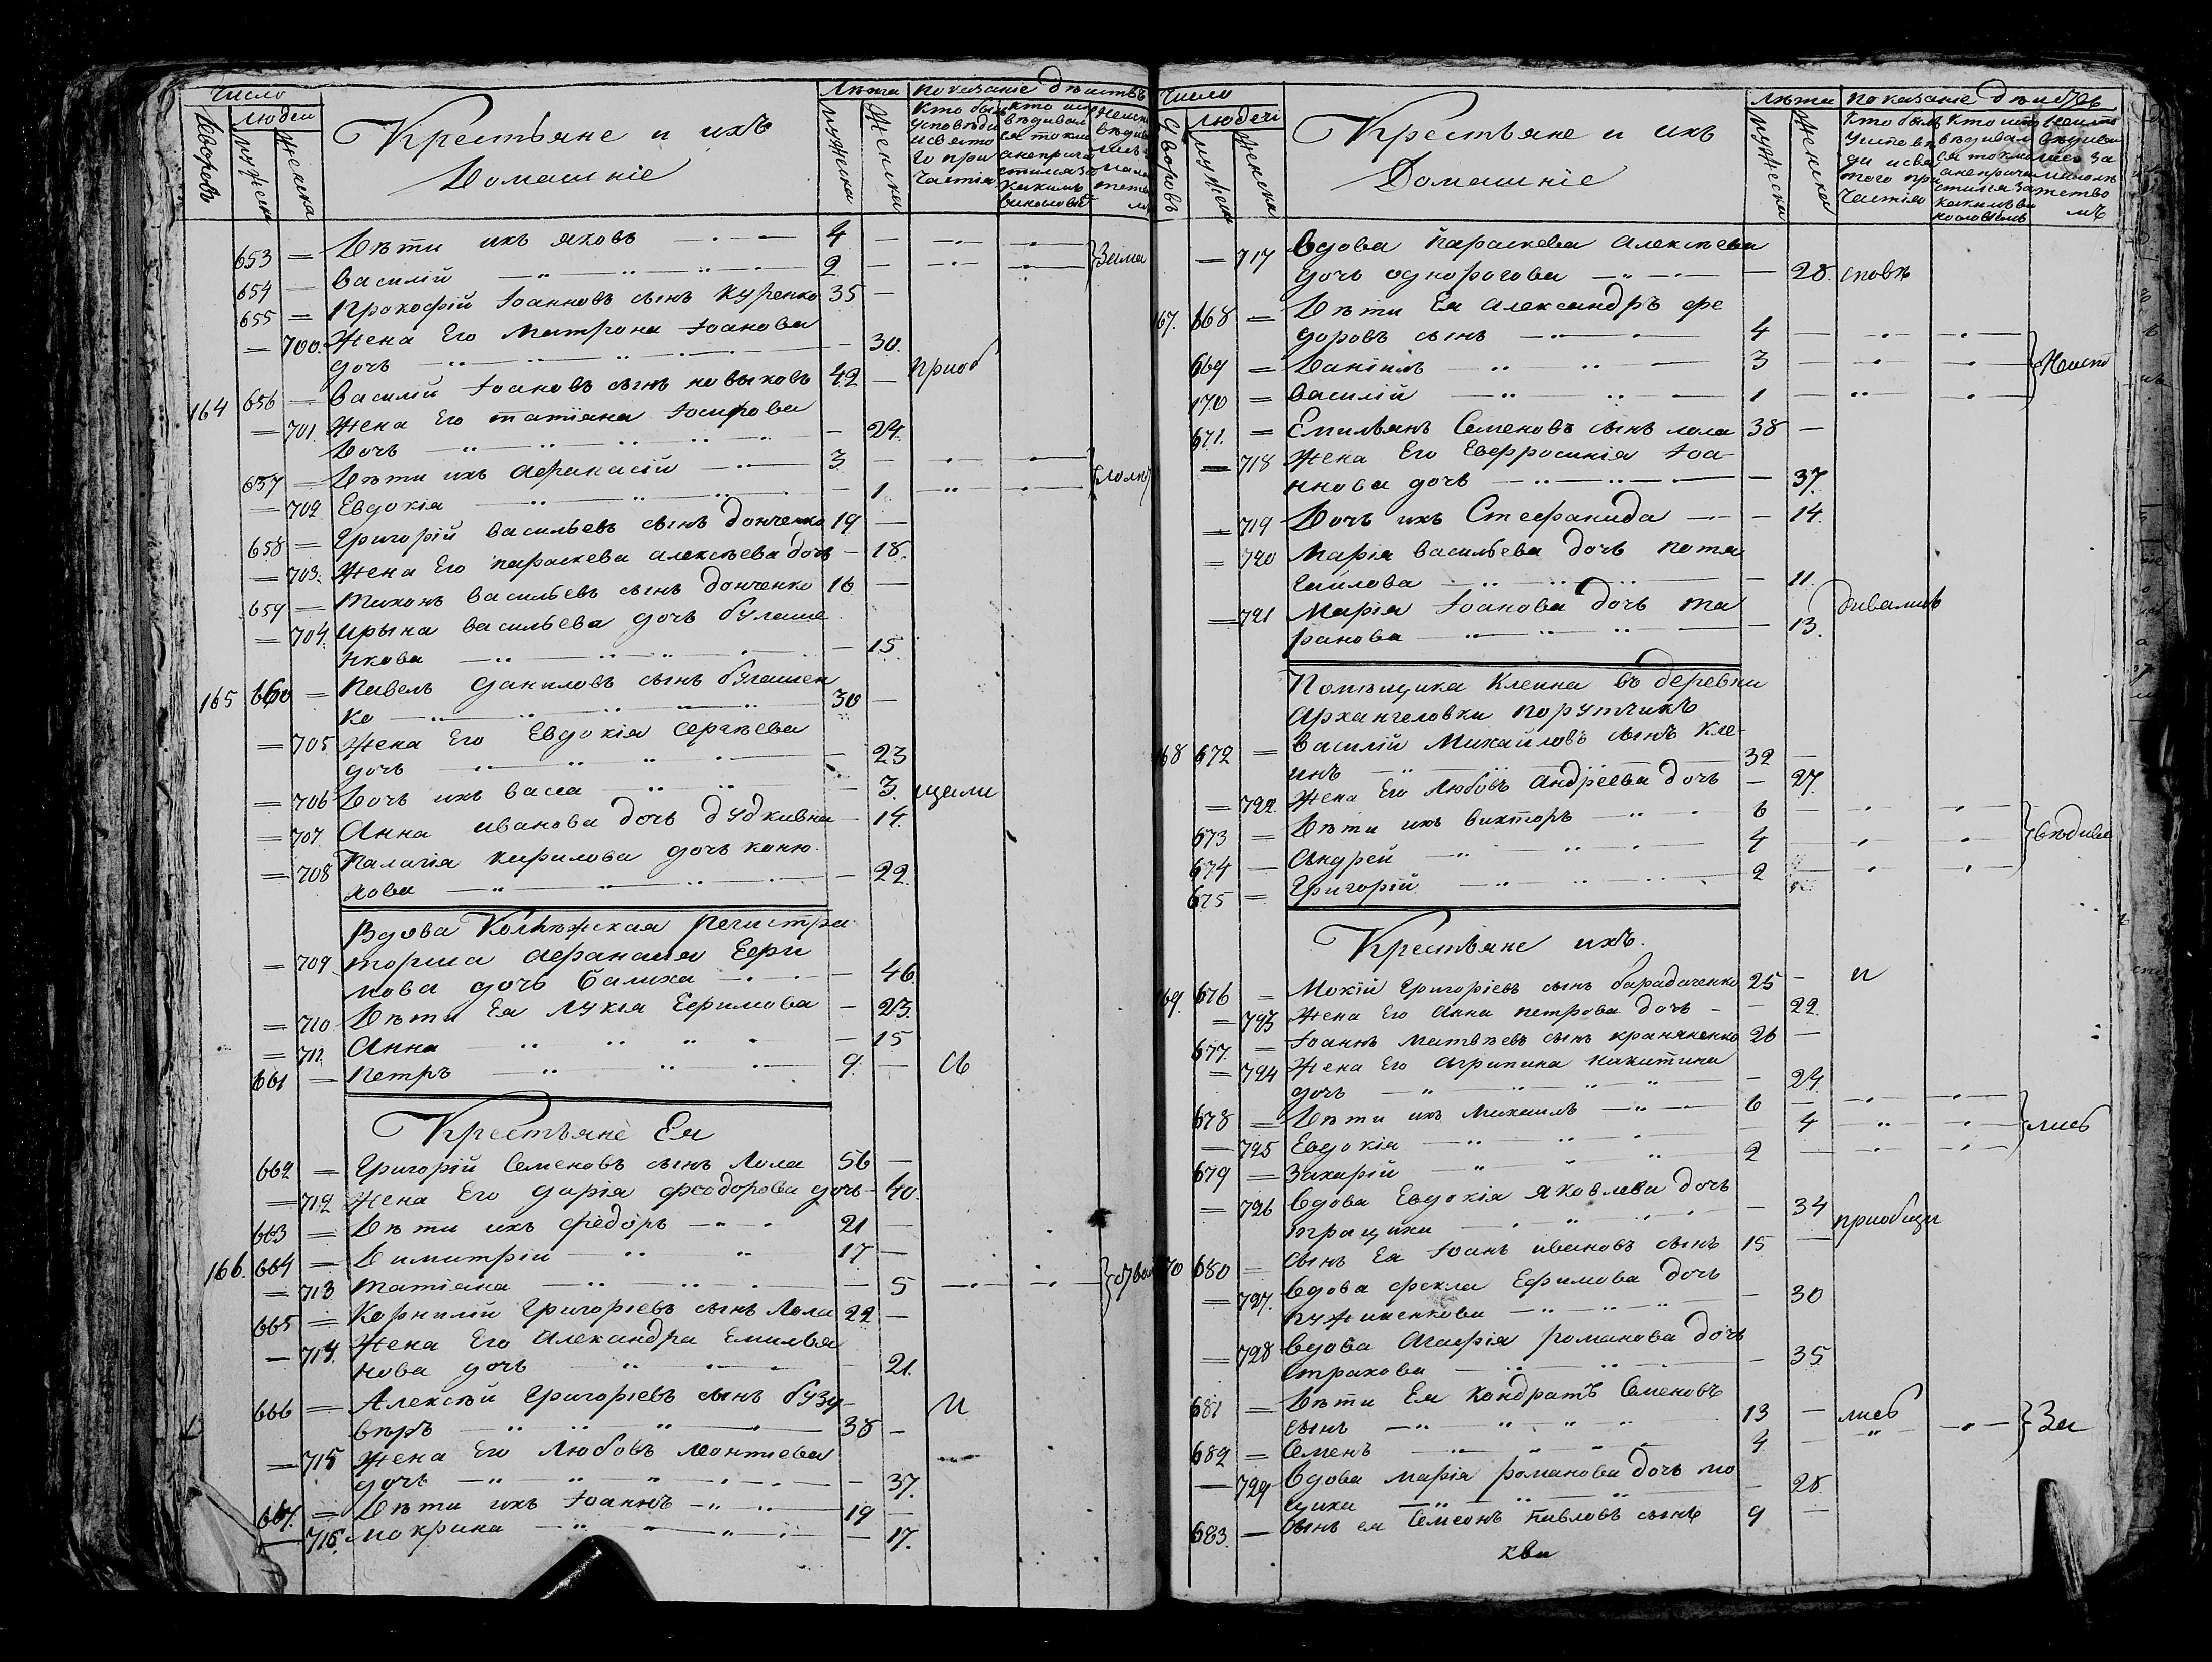 Число
Дворовъ
людей
мужеска
женска
Крестьяне и ихъ
Домашніе
Лѣта
мужеска
женска
показаніе дѣйствъ
кто былъ
у исповѣди
и свято
го при
частія
кто испо
вѣдывал
ся токмо
а не прича
стился за
какимъ
винословіе
653 — Дѣти ихъ яковъ 4 —
654 — василій 2 — Зама
655 — Прокофій Іоанновъ сынъ Куренко 35 —
— 700. Жена Его Матрона Іоанова
дочь — 30.
164 656 — Василій Іоановъ сынъ новыковъ 42 — приоб
— 701. Жена Его татіана Іосифова
Дочь — 24.
657 — Дѣти ихъ Афанасій 3 —
— 702. Евдокія — 1
658 — Григорій васильевъ сынъ донченко 19 —
— 703. Жена Его параскева алексѣева дочь — 18.
659 — Тихонъ васильевъ сынъ донченко 16 —
— 704. Ирына васильева дочь булаше
нкова — 15.
165 660 — Павелъ даниловъ сынъ булашен
ко 30 —
— 705 Жена Его Евдокія Сергѣева
дочь — 23
— 706 Дочь ихъ васса — 3. щели
— 707. Анна иванова дочь дудкивна — 14.
— 708 Палагія кирилова дочь коню
хова — 22.
Вдова Колѣжская Регистра
— 709 торша Афанасія Ефи
мова дочь Балиха — 46
— 710 Дѣти Ея Лукія Ефимова — 23.
— 711. Анна — 15
661 — Петръ 9 — св
Крестьяне Ея
662 — Григорій Семеновъ сынъ Лола 56 —
— 712 Жена Его дарія феодорова дочь — 40.
663 — Дѣти ихъ федоръ 21 —
166. 664 — Димитрій 17 —
— 713 Татіана — 5
665 — Корнилій Григоріевъ сынъ Лола 22 —
— 714. Жена Его Александра Емилья
нова дочь — 21.
666 — Алексѣй Григоріевъ сынъ бузу
вѣръ 38 — и
— 715 Жена Его Любовь Леонтіева
дочь — 37.
667. — Дѣти ихъ Іоаннъ 19 —
— 716. Мокрина — 17.
Число
Дворовъ
людей
мужеска
женска
Крестьяне и ихъ
Домашніе
Лѣта
мужеска
женска
показаніе дѣйствъ
кто былъ
у исповѣ
ди и свя
того при
частія
— 717 Вдова Параскева Алексѣева
дочь однорогова — 28. сповѣ
167. 668 — Дѣти Ея Александръ фе
доровъ сынъ 4 —
669 — Даніилъ 3 — Неиспо
170 — василій 1 —
671. — Емильянъ Семеновъ сынъ лола 38 —
— 718 Жена Его Евфросинія Іоа
ннова дочь — 37.
— 719 Дочь ихъ Стефанида — 14.
— 720 Марія васильева дочь пота
пайлова — 11.
— 721 Марія Іоанова дочь та
ранова — 13. дивались
Помѣщика Клеина въ деревни
Архангеловки порутчикъ
168 672 — Василій Михайловъ сынъ Кле-
инъ 32 —
— 722. Жена Его Любовь Андреева дочь — 27.
673 — Дѣти ихъ викторъ 6 —
674 — Андрей 4 — вѣдива
675 — Григорій 2 —
Крестьяне ихъ.
169. 676 — Мокій Григоріевъ сынъ барадаченко 25 — и
— 723 Жена Его Анна петрова дочь — 22.
677. — Іоаннъ Матвѣевъ сынъ краняненко 26 —
— 724 Жена Его Агрипина никитина
дочь — 24.
678 — Дѣти ихъ Михаилъ 6 —
— 725 Евдокія — 4 лись
679 — Захарій 2 —
— 726 Вдова Евдокія яковлева дочь
— 34 приобщи
170 680 — сынъ Ея Іоанъ ивановъ сынъ 15 —
— 727. Вдова фекла Ефимова дочь
— 30
— 728 Вдова Агафія романова дочь
страхова — 35.
681 — Дѣти Ея кондратъ Семеновъ
сынъ 13 — лись
682 — Семенъ 4 — За
— 729 Вдова марія романова дочь мо
— 28.
683. — Сынъ ея Семеонъ Павловъ сынъ 9 —